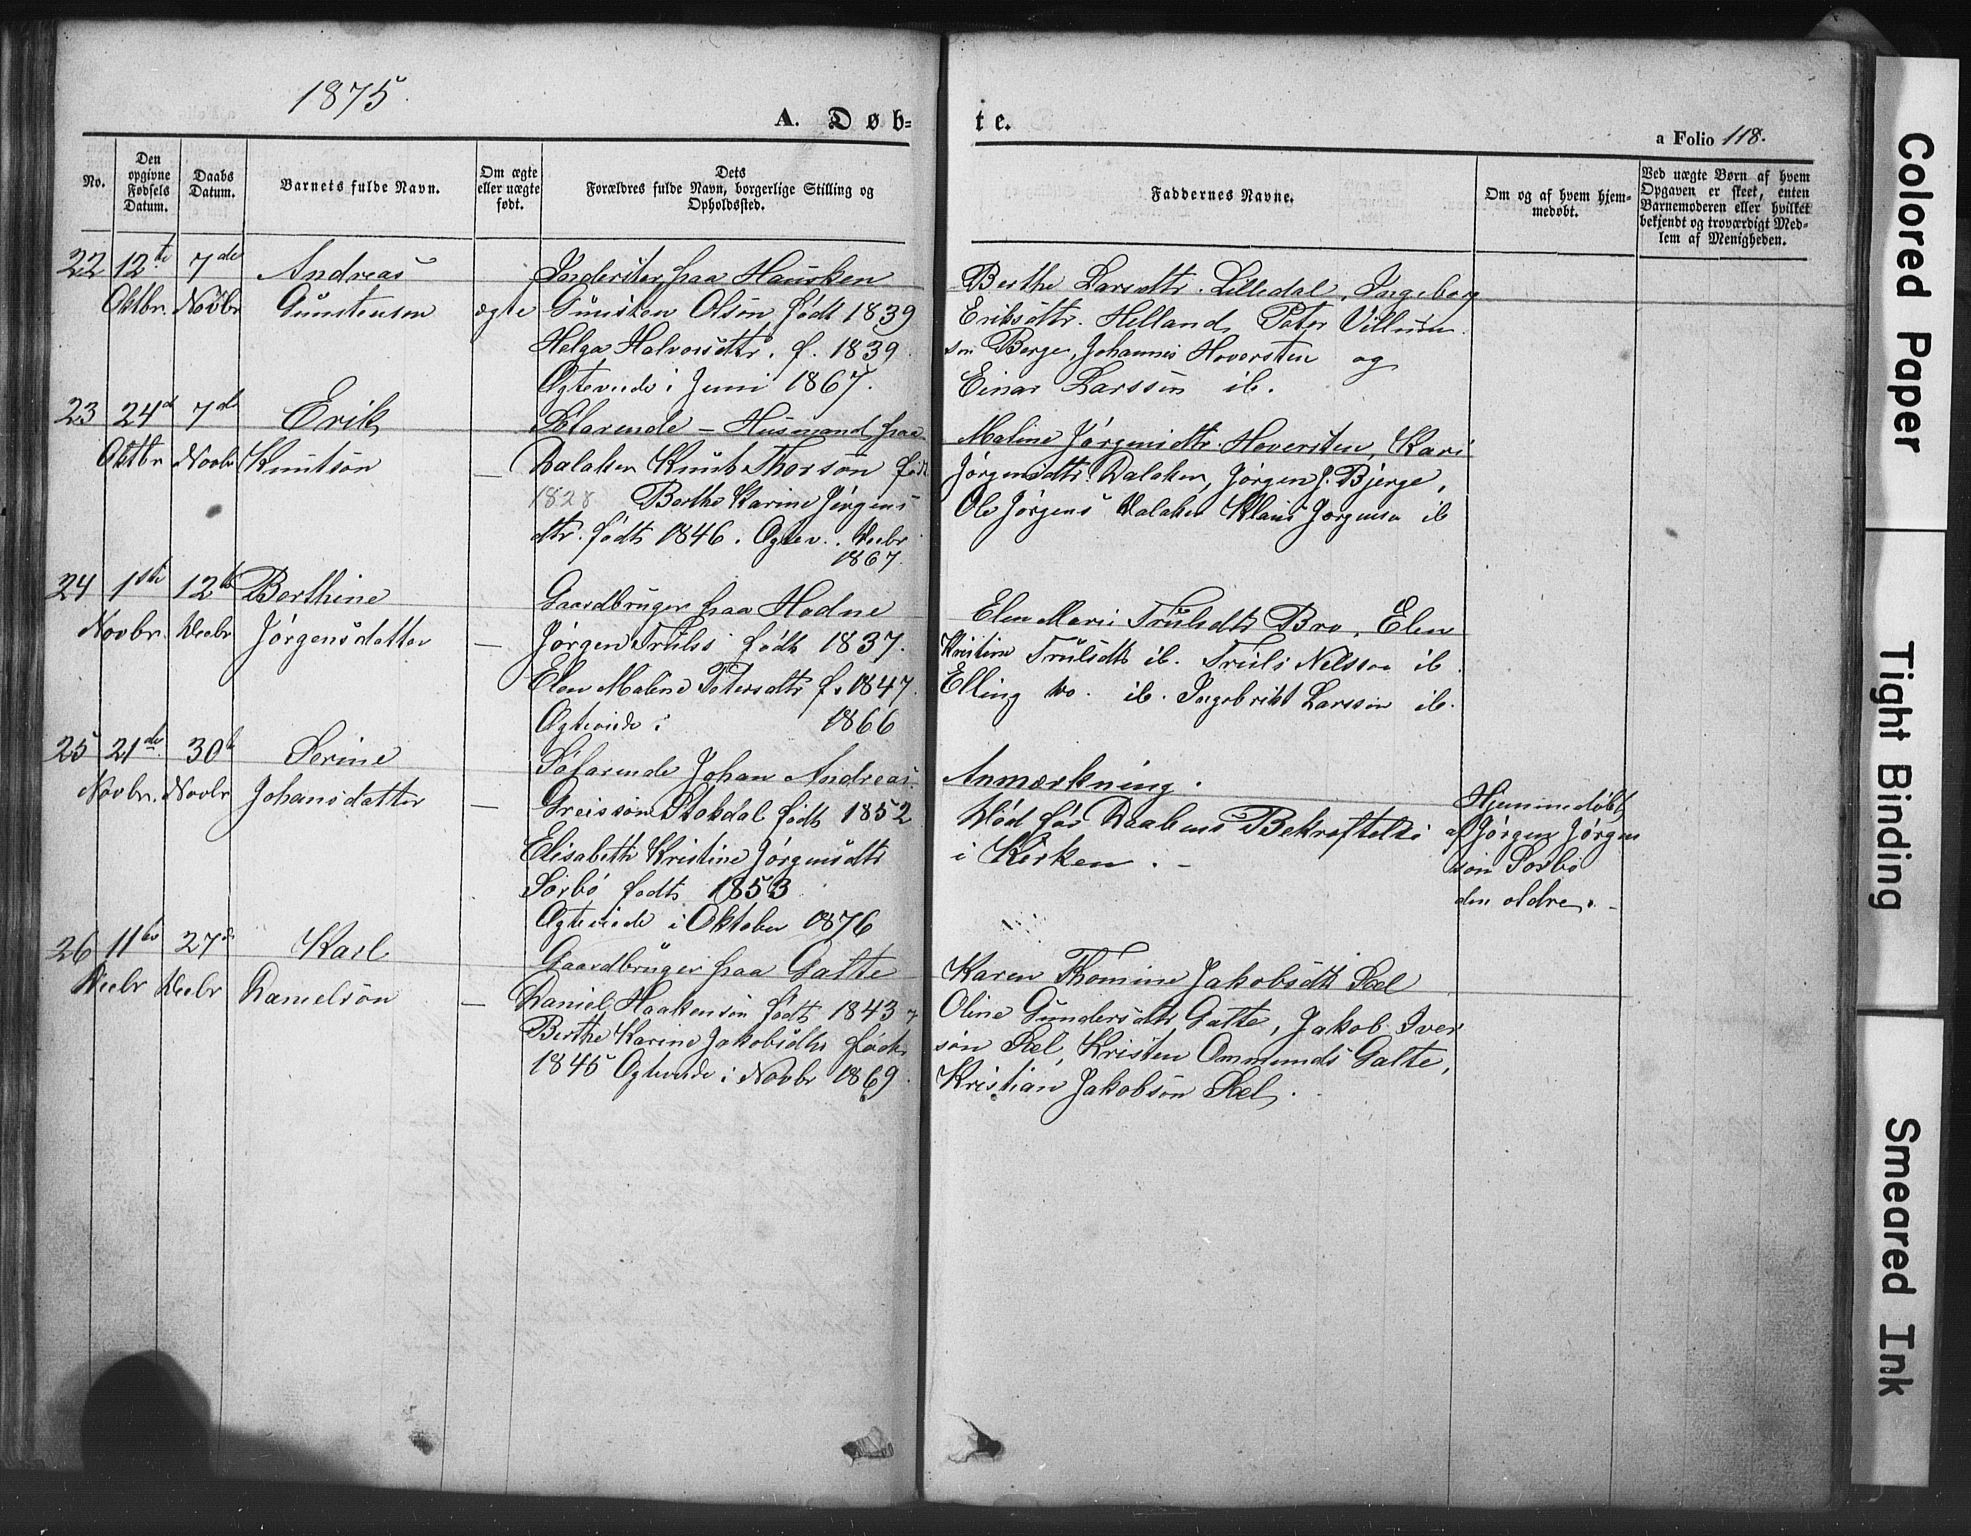 1875.
A. Døb-
te.
a Folio 118.
No.
Den opgivne Fødsels Datum.
Daabs Datum.
Barnets fulde Navn.
Om ægte eller uægte født.
Dets Forældres fulde Navn, borgerlige Stilling og Opholdssted.
Faddernes Navne.
Om og af hvem hjemmedøbt.
Ved uægte Børn af hvem Opgaven er skeet, enten Barnemoderen eller hvilket bekjendt og troværdigt Medlem af Menigheden.
22 12te 7de Andreas
Oktbr. Novbr Gunstensen ægte
paa Hausken
Gunsten Olsøn født 1839
Helga Halvorsdtr. f. 1839.
Ægteviede i Juni 1867.
Berthe Larsdtr. Lilledal, Ingeborg
Eriksdtr. Helland, Peter Villum
søn Berge, Johannes Hoversten og
Einar Larssøn ib.
23 24d 7de Erik
Oktbr Novbr Knutsøn —
Søfarende – Husmand paa
Dalaker Knut Thorsøn født
1828 Berthe Karine Jørgens
dtr. født 1846. Ægtev. Decbr
1867.
Maline Jørgensdtr. Hoversten, Kari
Jørgensdtr. Dalaker, Jørgen J. Bjerge,
Ole Jørgens Dalaker Klaus Jørgensen ib
24 1ste 12te Berthine
Novbr. Decbr Jørgensdatter —
Gaardbruger paa Hodne
Jørgen Truls født 1837.
Elen Maline Petersdtr f. 1847.
Ægteviede i 1866
Elen Marie Trulsdtr Bro, Elen
Kristine Trulsdtr ib. Truls Nelsson ib
Elling do. ib. Ingebrikt Larssøn ib.
25 21de 30te Serine
Novbr. Novbr Johansdatter —
Søfarende Johan Andreas
Greissøn Stokdal født 1852
Elisabeth Kristine Jørgensdtr
Sørbø født 1853
Ægteviede i Oktober 1876
Anmærkning.
Død før Daabens Bekræftelse
i Kirken. –
Hjemmedøbt
af Jørgen Jørgen
søn Sørbø
den ældre. –
26 11te 27de Karl
Decbr Decbr Danielsøn —
Gaardbruger paa Galte
Daniel Haakensøn født 1843
Berthe Karine Jakobsdtr født
1845 Ægteviede i Novbr 1869.
Karen Thomine Jakobsdtr Sæl
Oline Gundersdtr Galte, Jakob Iver
søn Sæl, Kristen Ommunds Galte,
Kristian Jakobsøn Sæl.
Colored Paper
Tight Binding
Smeared Ink